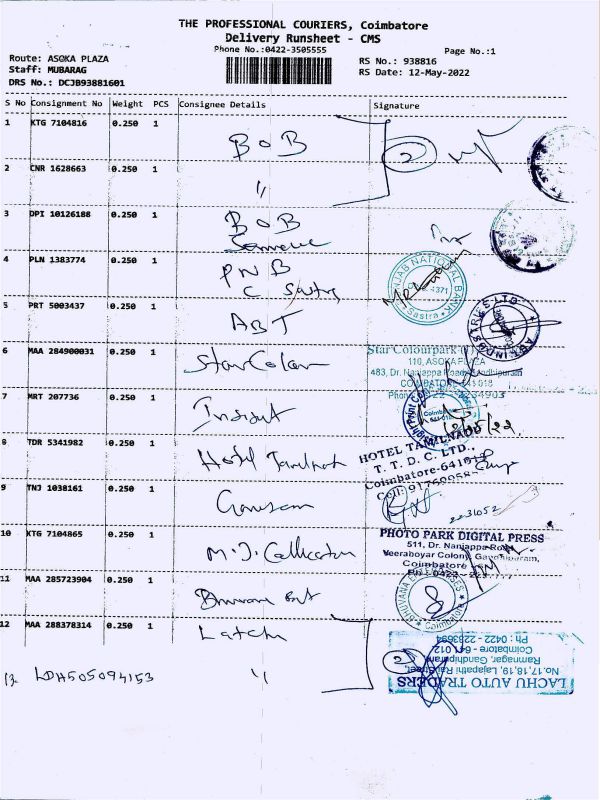 THE PROFESSIONAL COURIERS, Coimbatore
Delivery Runsheet - CMS
Phone No.:0422-3505555
Page No.:1
Route: ASOKA PLAZA
RS No.: 938816
Staff: MUBARAG
RS Date: 12-May-2022
DRS No.: DCJB93881601
S No Consignment No Weight PCS Consignee Details Signature
1 KTG 7104816 0.250 1 BOB 2
2 CNR 1628663 0.250 1 "
3 DPI 10126188 0.250 1 BOB
4 PLN 1383774 0.250 1 PNB
C Sastry
PUNJAB NATIONAL BANK
Sastra
5 PRT 5003437 0.250 1 ABT
ABT INDUSTRIES LTD
6 MAA 284900031 0.250 1 Star Colour
Star Colourpark
110, ASOKA PLAZA
483, Dr. Nanjappa Road, Gandhipuram
COIMBATORE-641 018
Phone: 0422 - 2234903
7 MRT 207736 0.250 1 Insight
Coimbatore
12/05/22
8 TDR 5341982 0.250 1 Hotel Tamilnadu
HOTEL TAMILNADU
T. T. D. C. LTD.,
Coimbatore-641018
9 TNJ 1038161 0.250 1 Ganesan
2231052
10 KTG 7104865 0.250 1 M.J. Collection
PHOTO PARK DIGITAL PRESS
511, Dr. Nanjappa Road,
Veeraboyar Colony, Gandhipuram,
Coimbatore
11 MAA 285723904 0.250 1
Coimbatore
12 MAA 288378314 0.250 1 Latchu
13 LDH505094153 "
2
LACHU AUTO TRADERS
No.17,18,19, Lajapathi Rai Street,
Ramnagar, Gandhipuram,
Coimbatore - 641 012
Ph : 0422 - 2233694